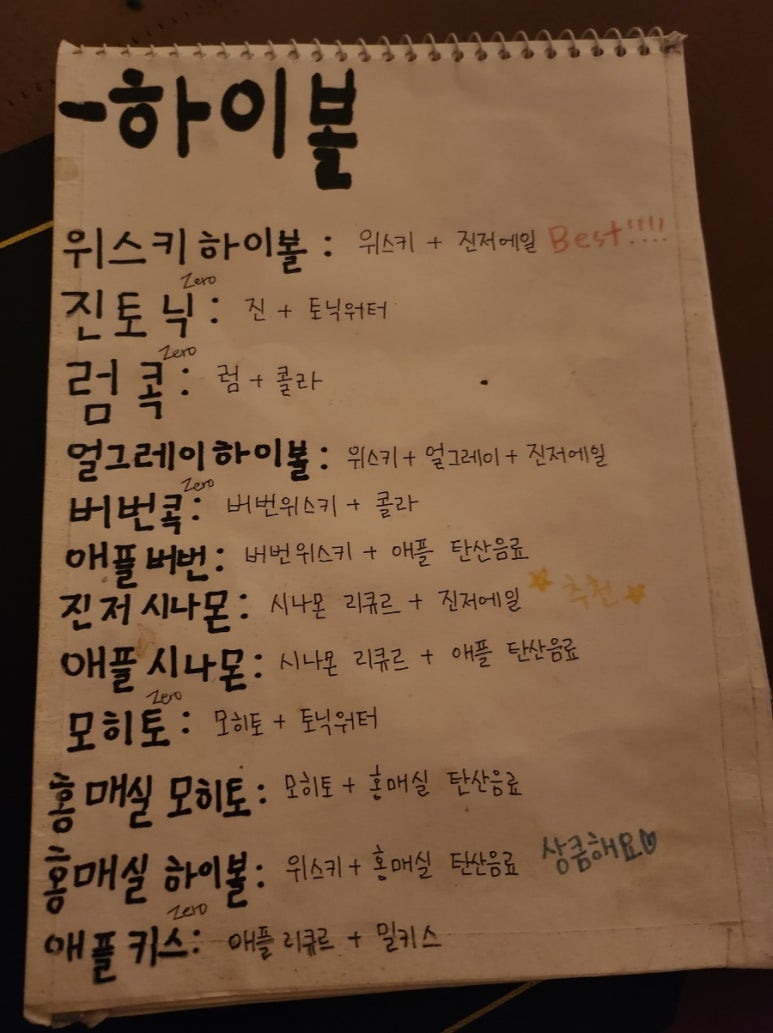 -하이볼
위스키 하이볼 : 위스키 + 진저에일 Best!!!!
Zero
진토닉 : 진 + 토닉워터
Zero
럼콕 : 럼 + 콜라
얼그레이하이볼 : 위스키 + 얼그레이 + 진저에일
Zero
버번콕 : 버번위스키 + 콜라
애플버번 : 버번위스키 + 애플 탄산음료
진저시나몬 : 시나몬 리큐르 + 진저에일 ☆ 추천 ☆
애플시나몬 : 시나몬 리큐르 + 애플 탄산음료
Zero
모히토 : 모히토 + 토닉워터
홍매실 모히토 : 모히토 + 홍매실 탄산음료
홍매실 하이볼 : 위스키 + 홍매실 탄산음료 상큼해요♡
Zero
애플키스 : 애플리큐르 + 밀키스